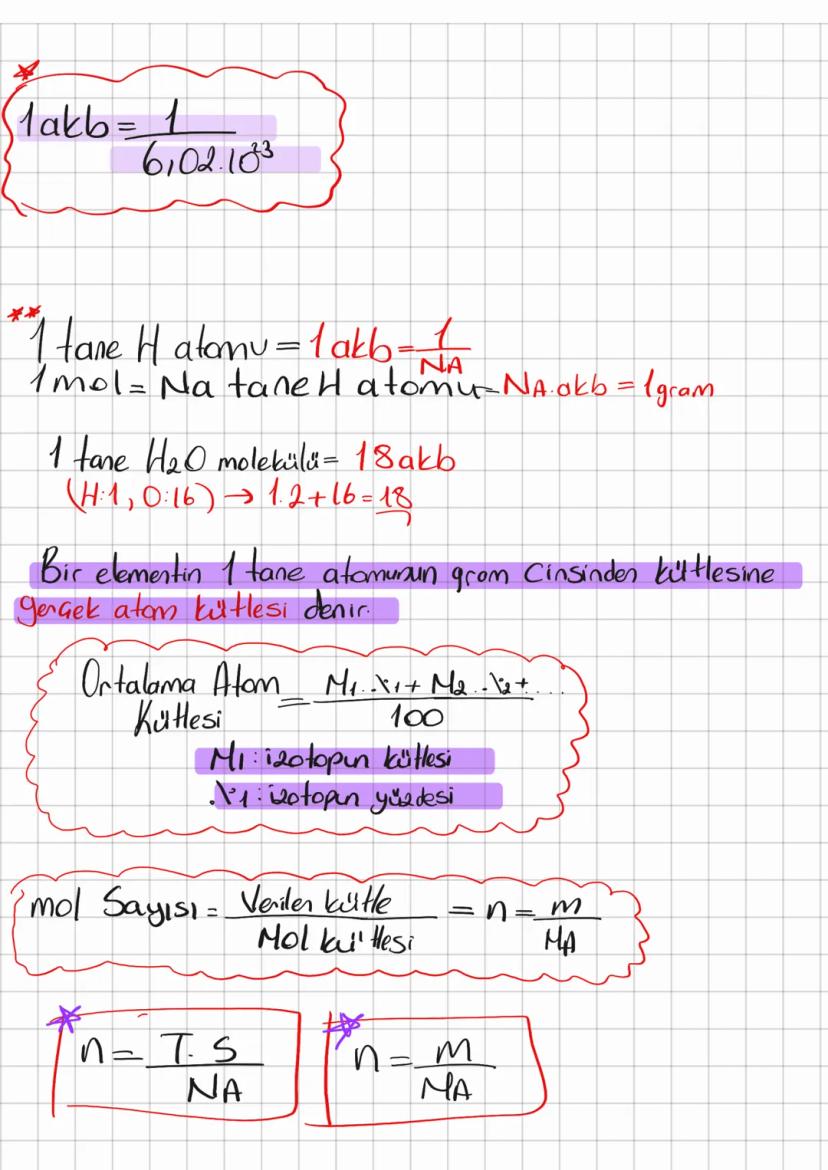 1akb = 1 / 6,02.10²³
1 tane H atomu = 1akb = 1 / NA
1mol = Na tane H atomu = NA.akb = 1gram
1 tane H₂O molekülü = 18akb
(H:1, O:16) → 1.2+16=18
Bir elementin 1 tane atomunun gram Cinsinden kütlesine
gerçek atom kütlesi denir.
Ortalama Atom Kütlesi = M₁.%₁+ M₂.%₂+... / 100
M₁: izotopun kütlesi
%₁: izotopun yüzdesi
mol Sayısı = Verilen kütle / Mol kütlesi = n = m / MA
n = T.S / NA
n = m / MA